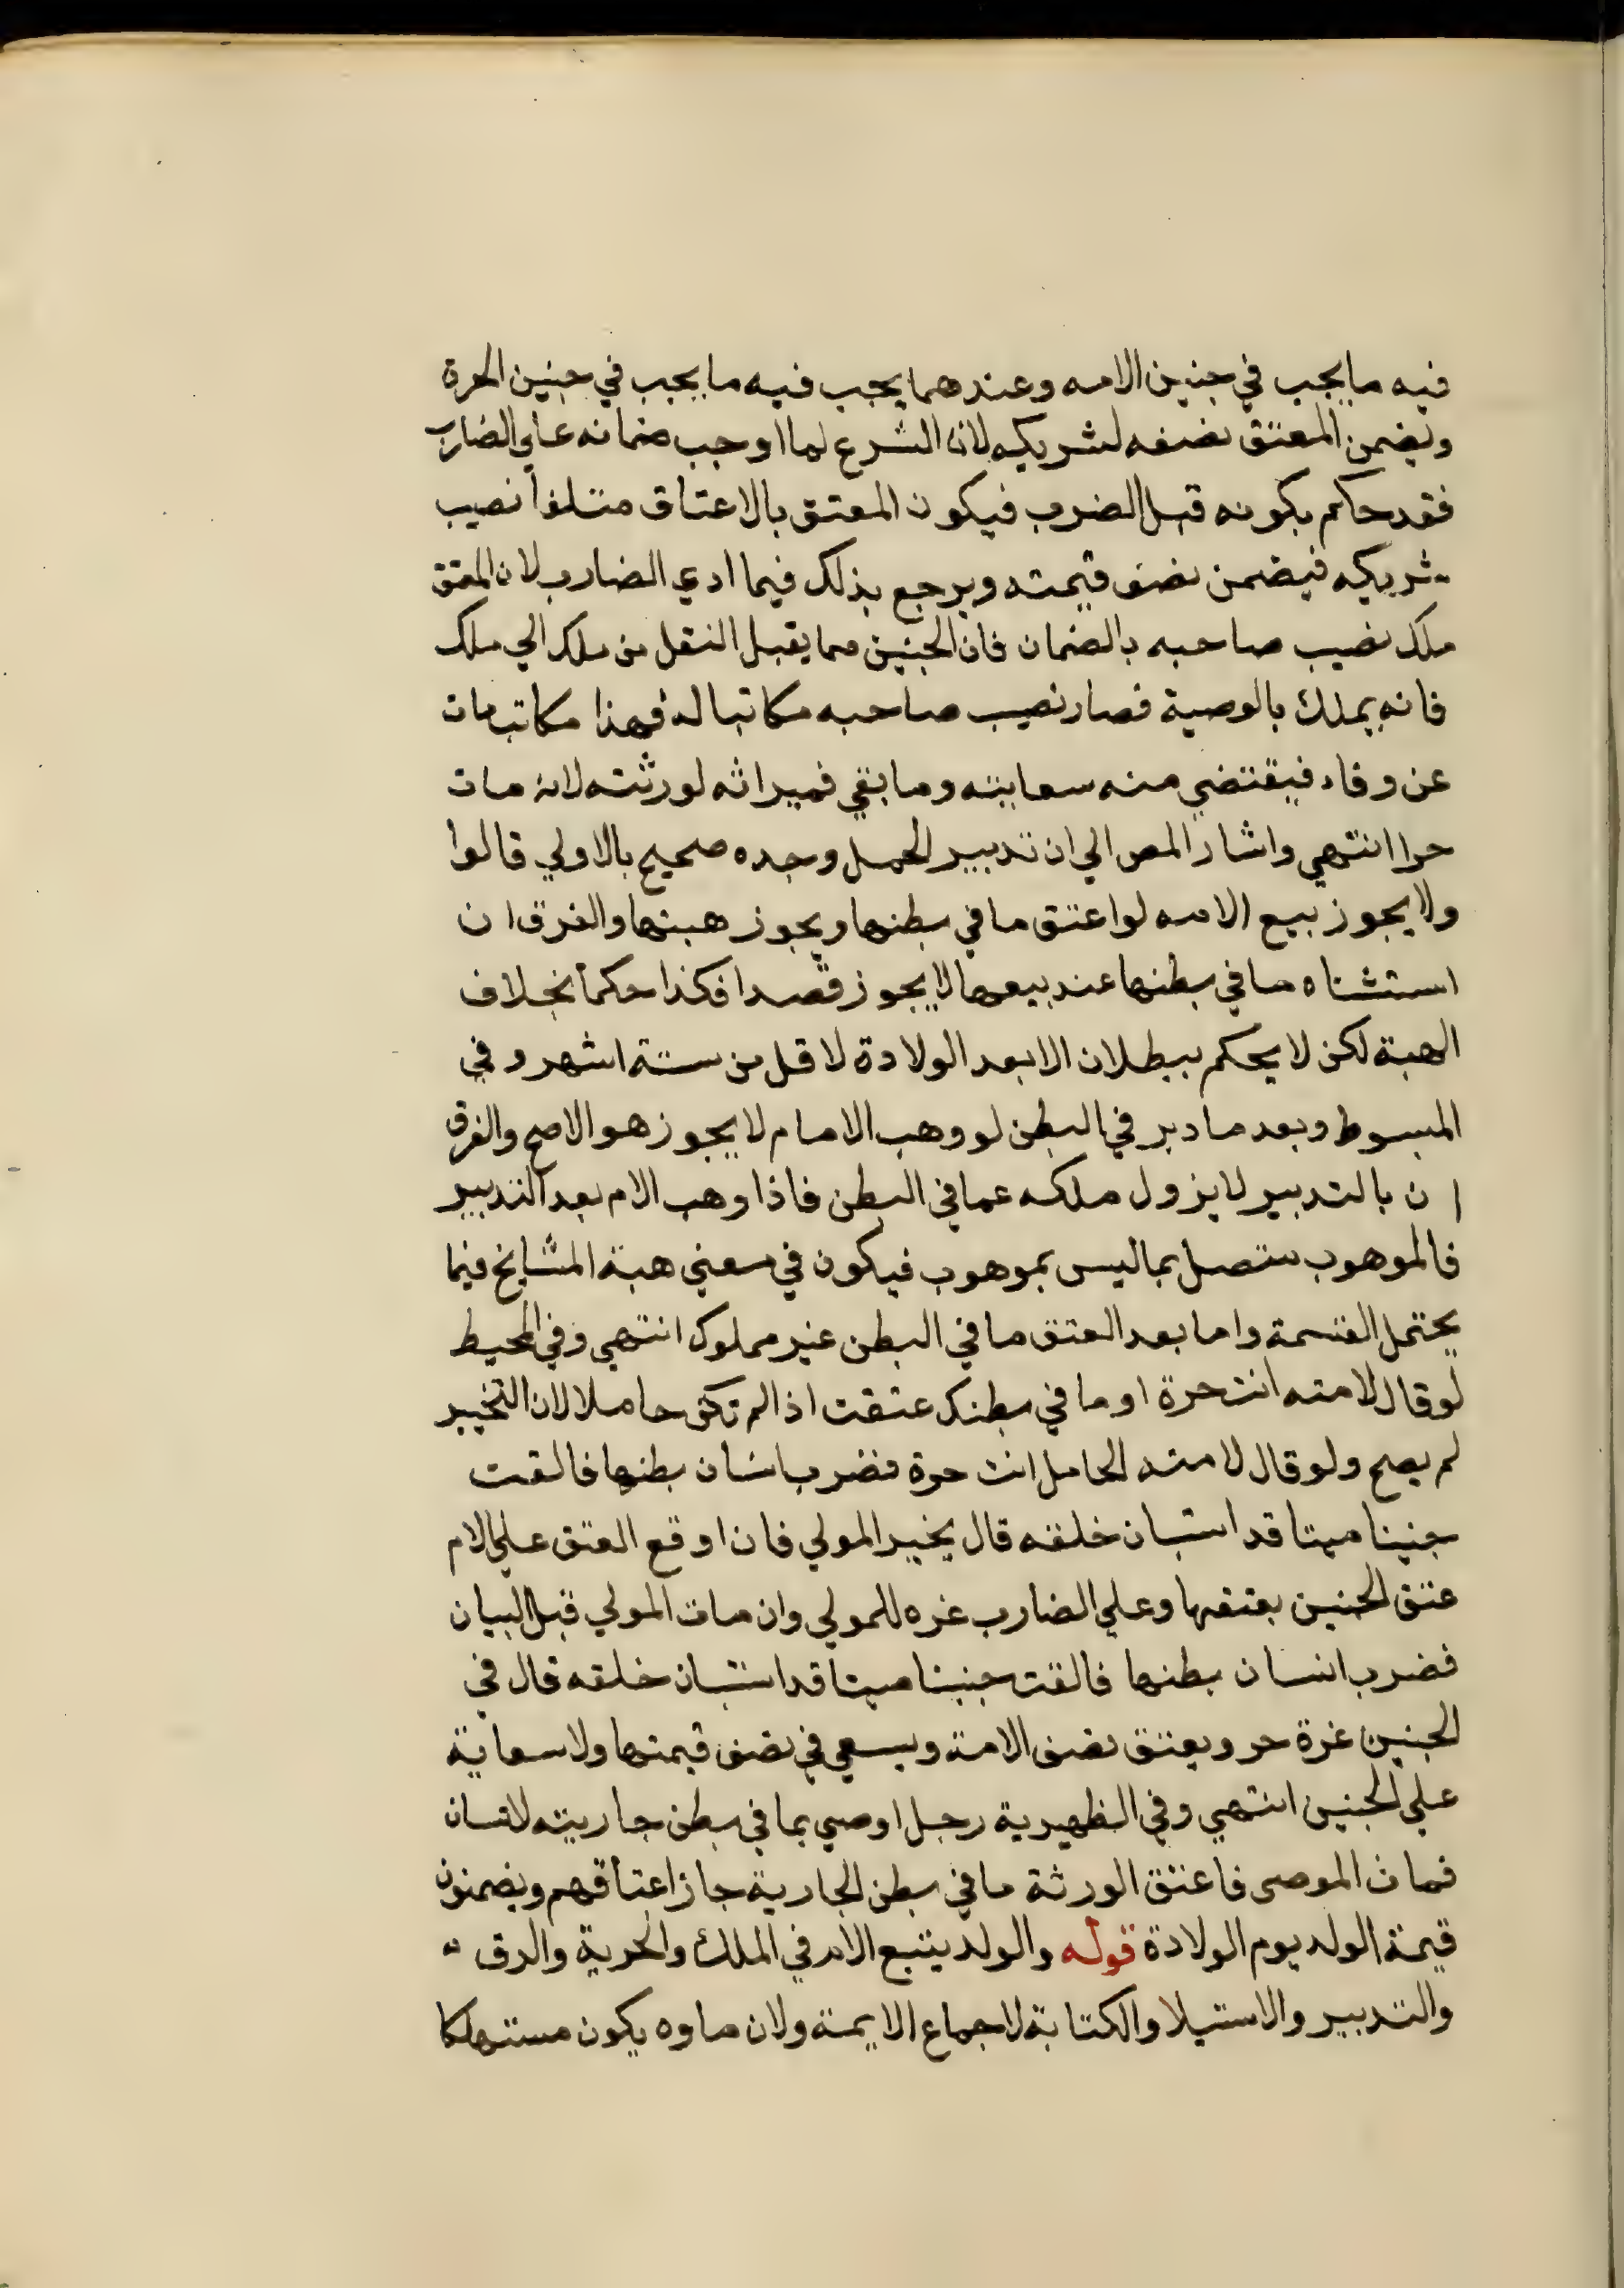 فيه ما يجب في جنين الامه وعندهما يجب فيه ما يجب في جنين الحرة
ويضمن المعتق نصفه لشريكه لان الشرع لما اوجب ضمانه علي الضارب
فقد حكم بكونه قبل الضرب فيكون المعتق بالاعتاق متلفا نصيب
شريكه فيضمن نصف قيمته ويرجع بذلك فيما ادي الضارب لان المعتق
ملك نصيب صاحبه بالضمان فان الجنين مما يقبل النقل من ملك الي ملك
فانه يملك بالوصية فصار نصيب صاحبه مكاتبا له فهذا مكاتب مات
عن وفاء فيقتضي منه سعايته وما بقي فميراثه لورثته لانه مات
حرا انتهي واشار المص الي ان تدبير الحمل وحده صحيح بالاولي قالوا
ولا يجوز بيع الامه لو اعتق ما في بطنها ويجوز هبتها والفرق ان
استثناه ما في بطنها عند بيعها لا يجوز قصدا فكذا حكما بخلاف
الهبة لكن لا يحكم ببطلان الا بعد الولادة لاقل من ستة اشهر وفي
المبسوط وبعد ما دبر في البطن لو وهب الامام لا يجوز هو الاصح والفرق
ان بالتدبير لا يزول ملكه عما في البطن فاذا وهب الام بعد التدبير
فالموهوب متصل بما ليس بموهوب فيكون في معني هبة المشايخ فيما
يحتمل القسمة واما بعد العتق ما في البطن غير مملوك انتهي وفي المحيط
لو قال لامته انت حرة او ما في بطنك عتقت اذا لم تكن حاملا لان التخيير
لم يصح ولو قال لامته الحامل انت حرة فضرب انسان بطنها فالقت
جنينا ميتا قد استبان خلقه قال يخير المولي فان اوقع العتق علي الام
عتق الجنين بعتقها وعلي الضارب غره للمولي وان مات المولي قبل البيان
فضرب انسان بطنها فالقت جنينا ميتا قد استبان خلقه قال في
الجنين غرة حر ويعتق نصف الامة ويسعي في نصف قيمتها ولا سعاية
علي الجنين انتهي وفي الظهيرية رجل اوصي بما في بطن جاريته لانسان
فمات الموصى فاعتق الورثة ما في بطن الجارية جاز اعتاقهم ويضمنون
قيمة الولد يوم الولادة قوله والولد يتبع الام في الملك والحرية والرق
والتدبير والاستيلا والكتابة لاجماع الايمة ولان ماوه يكون مستهلكا